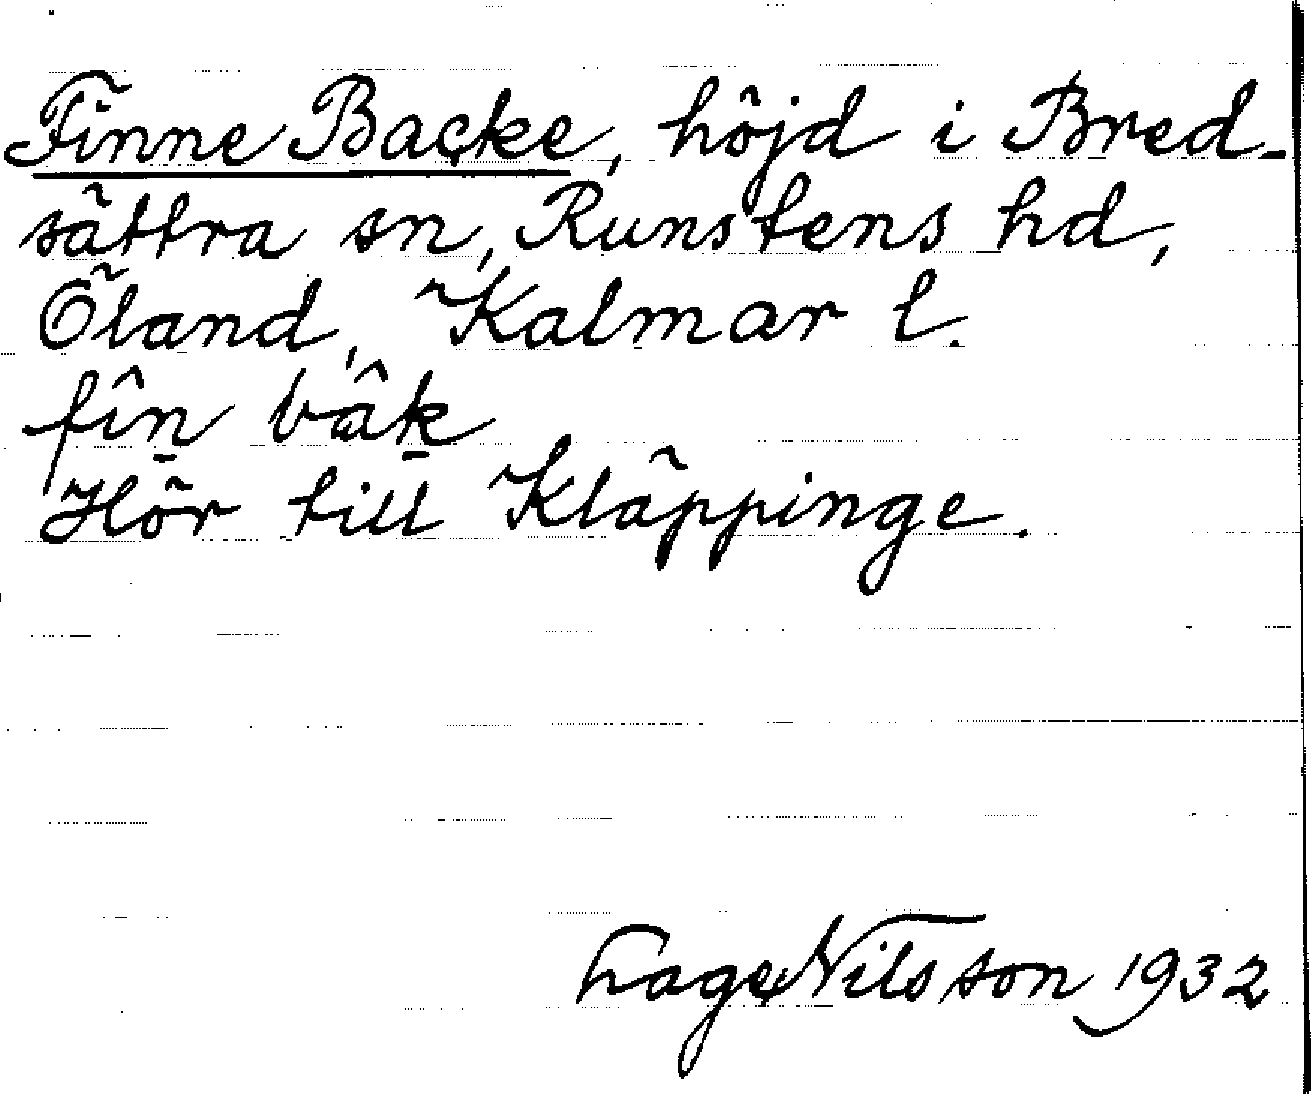 Finne Backe, höjd i Bred-
sättra sn, Runstens hd,
Öland, Kalmar l.
fîn bâk
Hör till Kläppinge.
Lage Nilsson 1932